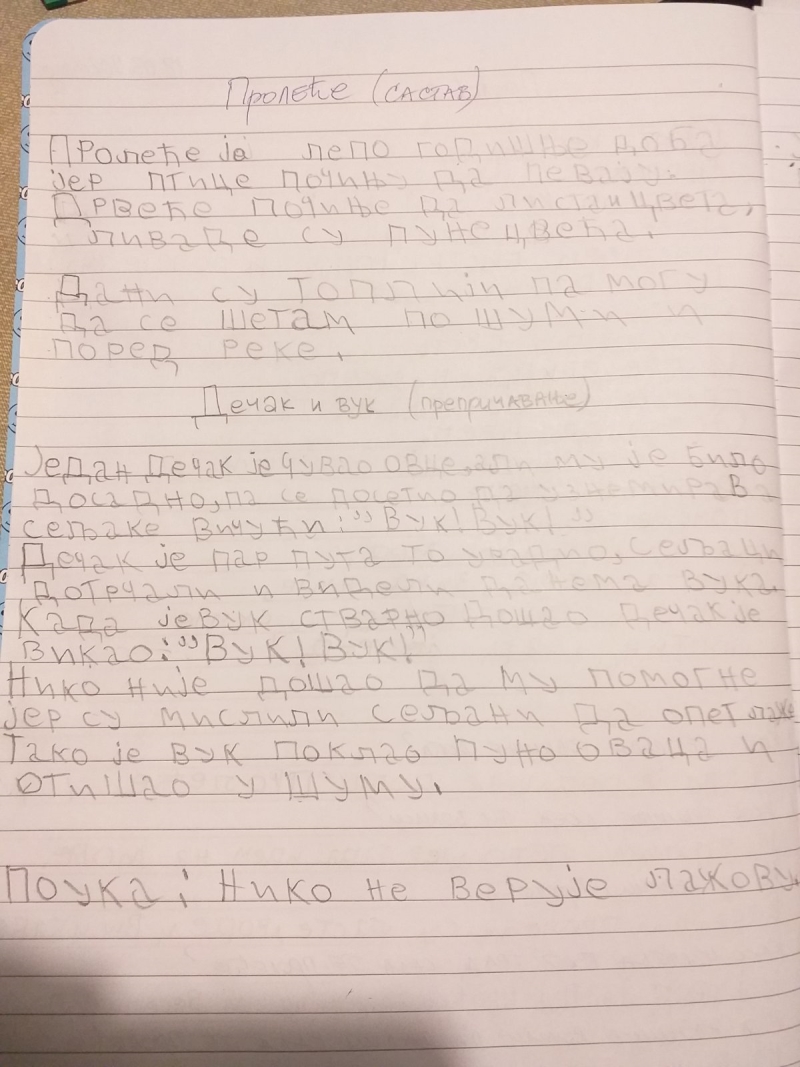 Пролеће (САСТАВ)
Пролеће је лепо годишње доба
јер птице почињу да певају.
Дрвеће почиње да листа и цвета,
ливаде су пуне цвећа.
Дани су топлији па могу
да се шетам по шуми и
поред реке.
Дечак и вук (препричавање)
Један дечак је чувао овце, али му је било
досадно, па се досетио да узнемирава
сељаке вичући: "Вук! Вук!"
Дечак је пар пута то урадио, сељаци
дотрчали и видели да нема вука.
Када је вук стварно дошао дечак је
викао: "Вук! Вук!"
Нико није дошао да му помогне
јер су мислили сељани да опет лаже
Тако је вук поклао пуно оваца и
отишао у шуму.
Поука: Нико не верује лажову